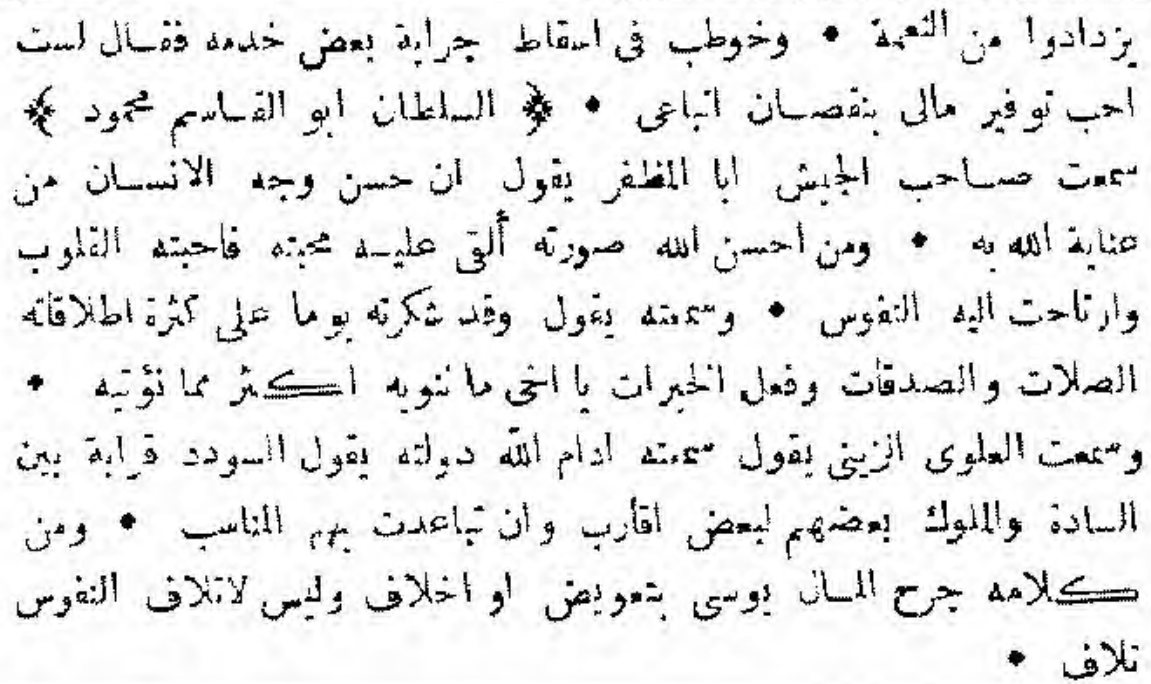 يزدادوا من النعمة • وخوطب فى اسقاط جراية بعض خدمه فقال لست
احب توفير مالى بنقصان اتباعى • ﴿ السلطان ابو القاسم محمود ﴾
سمعت صاحب الجيش ابا المظفر يقول ان حسن وجه الانسان من
عناية الله به • ومن احسن الله صورته ألقى عليه محبته فاحبته القلوب
وارتاحت اليه النفوس • وسمعته يقول وقد شكرته يوما على كثرة اطلاقاته
الصلات والصدقات وفعل الخيرات يا اخى ما ننويه اكثر مما نؤتيه •
وسمعت العلوى الزينى يقول سمعته ادام الله دولته يقول السودد قرابة بين
السادة والملوك بعضهم لبعض اقارب وان تباعدت بهم المناسب • ومن
كلامه جرح المال يوسى بتعويض او اخلاف وليس لاتلاف النفوس
تلاف •